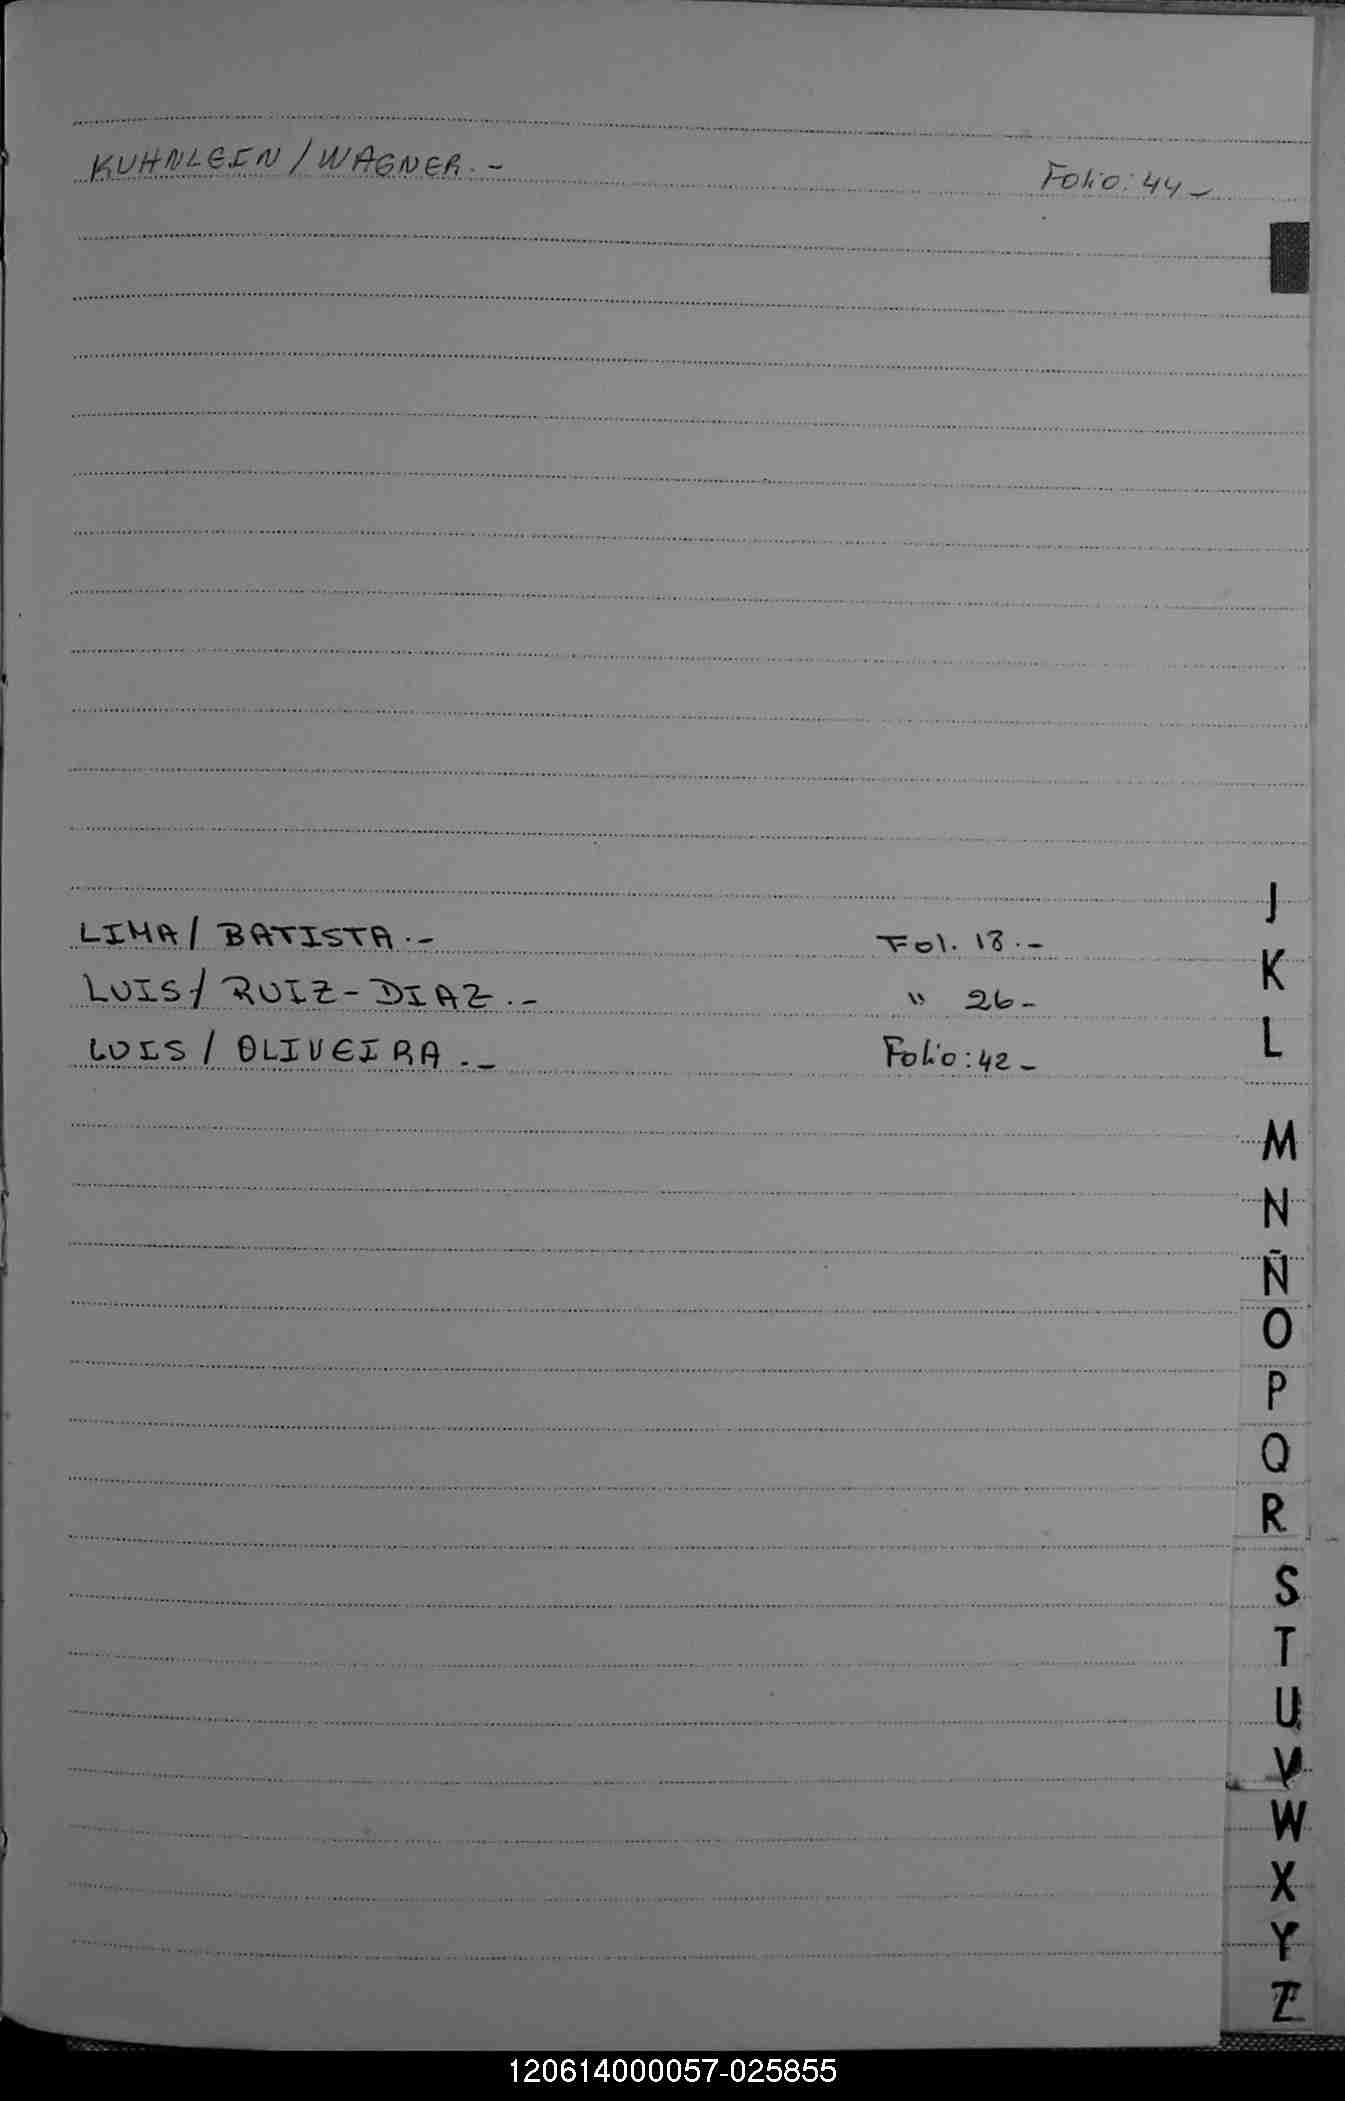 KUHNLEIN / WAGNER.- Folio: 44-
LIMA / BATISTA.- Fol. 18.-
LUIS / RUIZ-DIAZ.- " 26-
LUIS / OLIVEIRA.- Folio: 42-
J
K
L
M
N
Ñ
O
P
Q
R
S
T
U
V
W
X
Y
Z
120614000057-025855